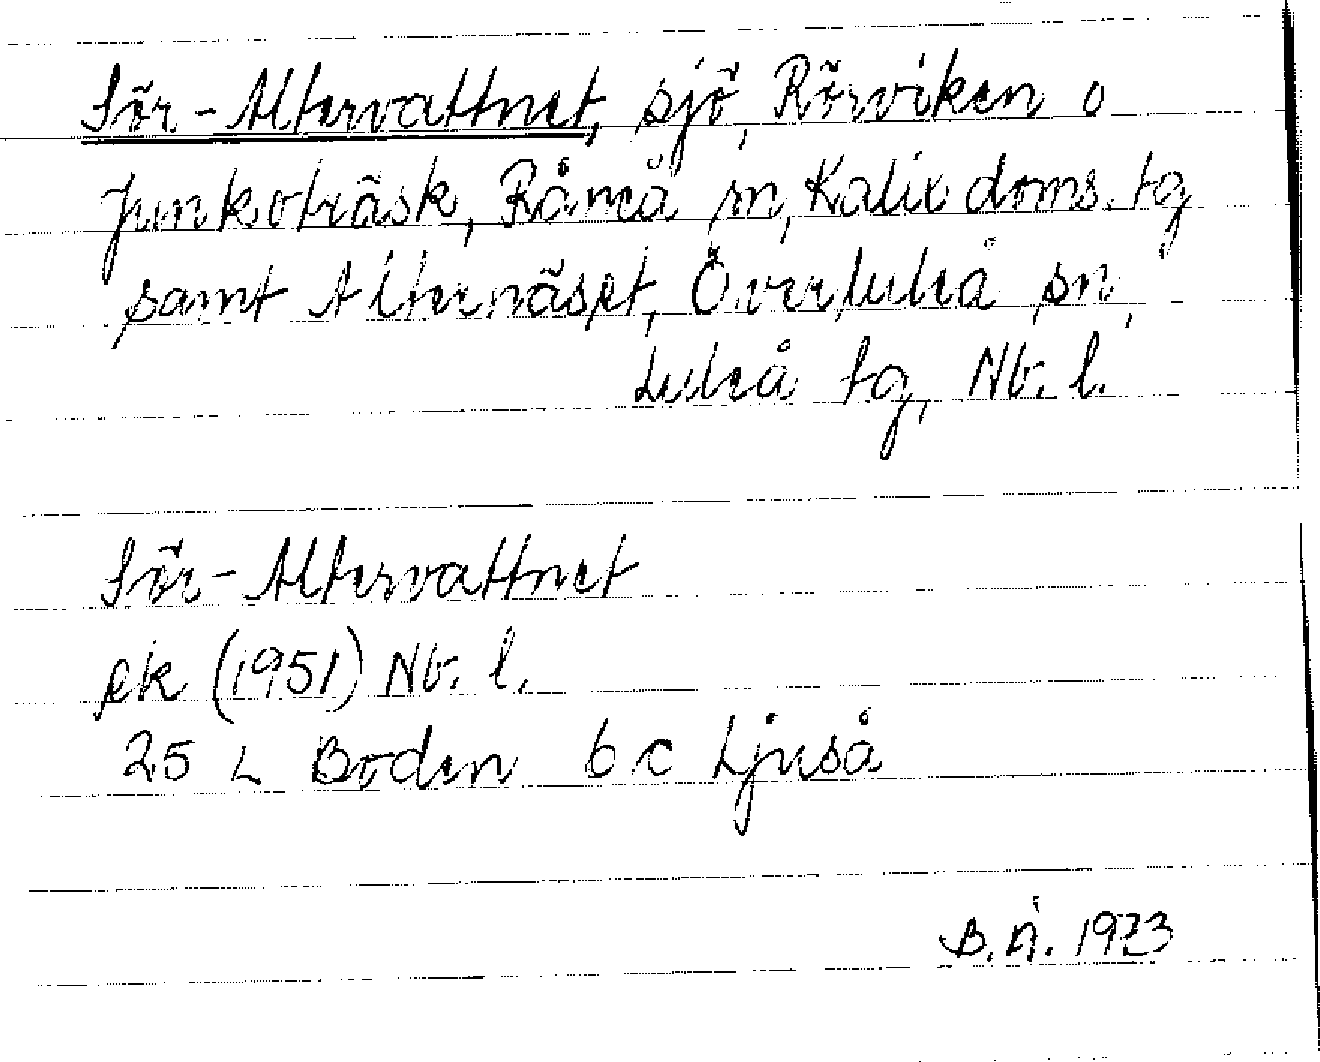 Sör-Altervattnet, sjö, Rörviken o
Junkoträsk, Råneå sn, Kalix doms. tg
samt Alternäset, Överluleå sn,
Luleå tg, Nb. l.
Sör-Altervattnet
ek (1951) Nb. l.
25 L Boden 6 c Ljuså
B. Å. 1973